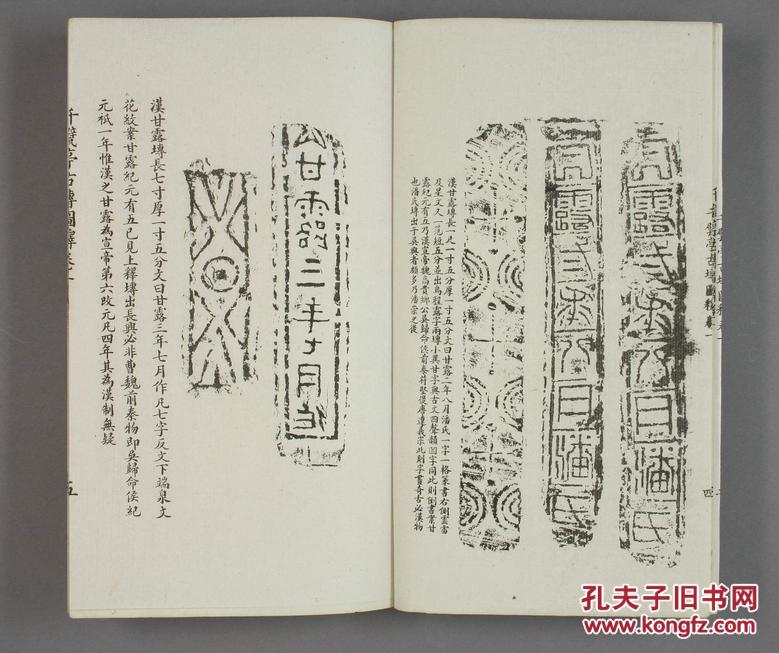 甘露二年八月潘氏
甘露二年八月潘氏
漢甘露塼長一尺一寸五分厚一寸五分文曰甘露二年八月潘氏一字一格篆書右側雲雷
及星文又一范短五分並出烏程露字兩塼小異甘字與古文四聲韻
字同此則倒書案甘
露紀元有五乃漢宣帝魏高貴鄉公吳歸命侯前秦苻堅後唐
此則字畫奇古必漢物
也潘氏塼出于吳興者頗多乃潘崇之後
甘露三年七月作
漢甘露塼長七寸厚一寸五分文曰甘露三年七月作凡七字反文下端泉文
花紋案甘露紀元有五已見上釋塼出長興必非曹魏前秦物即吳歸命侯紀
元祇一年惟漢之甘露為宣帝第六改元凡四年其為漢制無疑
千甓亭古塼圖釋卷一
五
四
孔夫子旧书网
www.kongfz.com